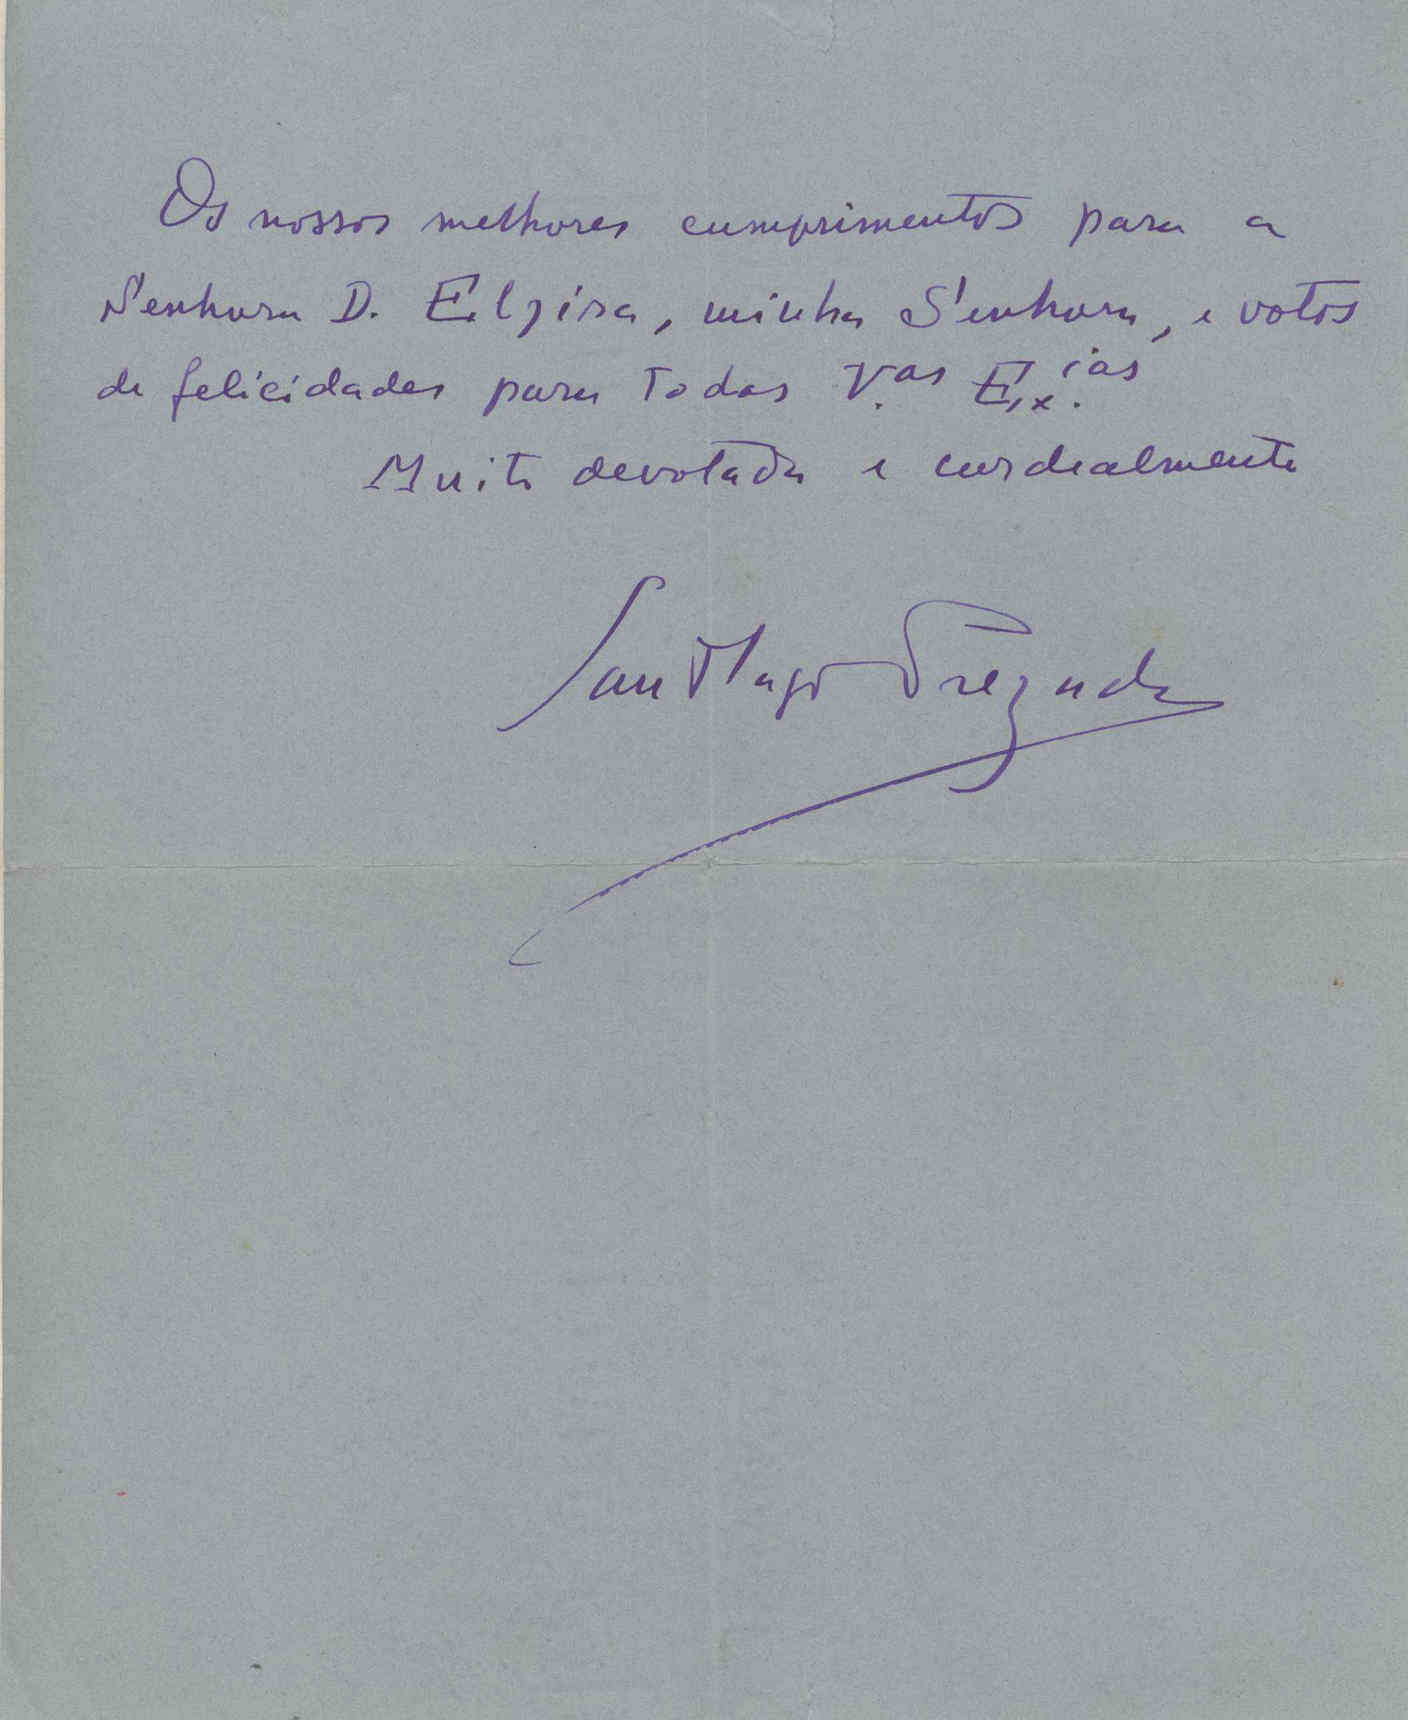 Os nossos melhores cumprimentos para a
Senhora D. Elzira, minha Senhora, e votos
de felicidades para todas V.as Ex.ias
Muito devotada e cordealmente
Santhago Prezado